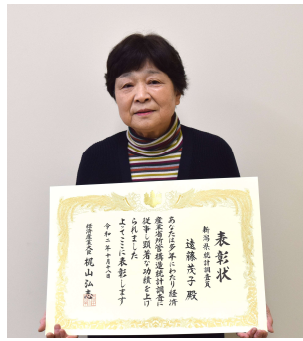 表彰状
新潟県統計調査員
遠藤茂子殿
あなたは多年にわたり経済
産業省所管構造統計調査に
従事し顕著な功績を上げ
られました
よってここに表彰します
令和二年十月十八日
経済産業大臣 梶山弘志